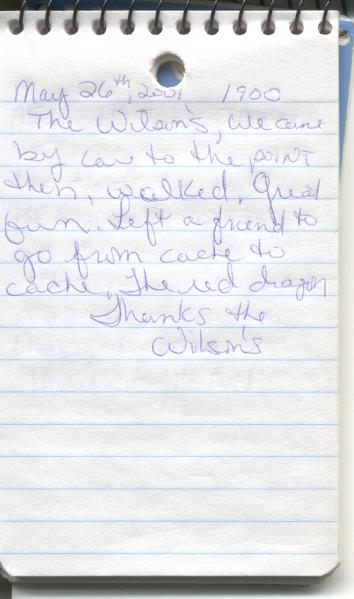 May 26th, 2001 1900
The Wilson's, We came
by car to the point
then, walked. Great
fun. Left a friend to
go from cache to
cache, The red dragon
Thanks the
Wilson's